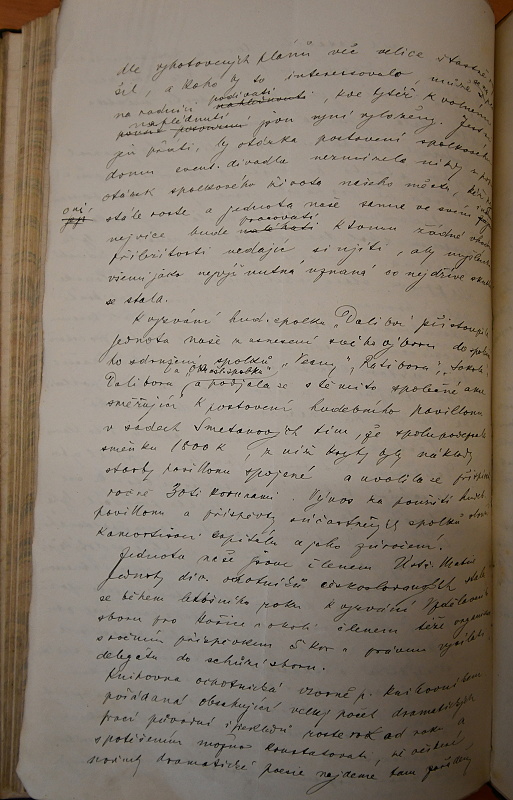 dle vyhotovených plánů více velice šťastně
šil, a koho by to interessovalo, může
na radnici podívati nahlédnouti, kde tytéž k volnému
nahlédnutí jsou nyní vyloženy. Jest
jen přáti, by otázka postavení spolkového
domu event. divadla nezmizela nikdy s
otázek spolkového života našeho města, který
stále roste a jednota naše sama ve svém
oni,
nejvíce bude pracovati ktomu žádné
příležitosti nedajíc si ujíti, aby myšlenka
všemi jako nejvýš nutná uznaná co nejdříve skutkem
se stala.
K vyzvání hud. spolku „Dalibor" přistoupila
jednota naše v usnesení svého výboru do
ho sdružení spolků „Vesny", „Ratibora", „Sokola",
Dalibora a podjala se s těmito společné akce
směřující k postavení hudebního pavillonu
v sadech Smetanových tím, že spolupodepsala
směnku 1800 K, z níž kryty byly náklady
stavby pavillonu spojené a uvolila se přispívati
ročně 30ti korunami. Výnos za použití hudeb.
pavillonu a příspěvky súčastněných spolků slouží
k amortisaci kapitálu a jeho zúročení.
Jednota naše jsouc členem Ústř. Matice
Jednoty div. ochotníků československých stala
se během letošního roku k vyzvání Vzdělávacího
sboru pro Hořice a okolí členem téže organisace
s ročním příspěvkem 5 kor a právem vysílati
delegáta do schůzí sboru.
Knihovna ochotnická vzorně p. knihovníkem
pořádaná obsahující velký počet dramatických
prací původní i překladů roste rok od roku a
s potěšením možno konstatovati, že veškeré
novinky dramatické poesie najdeme tam